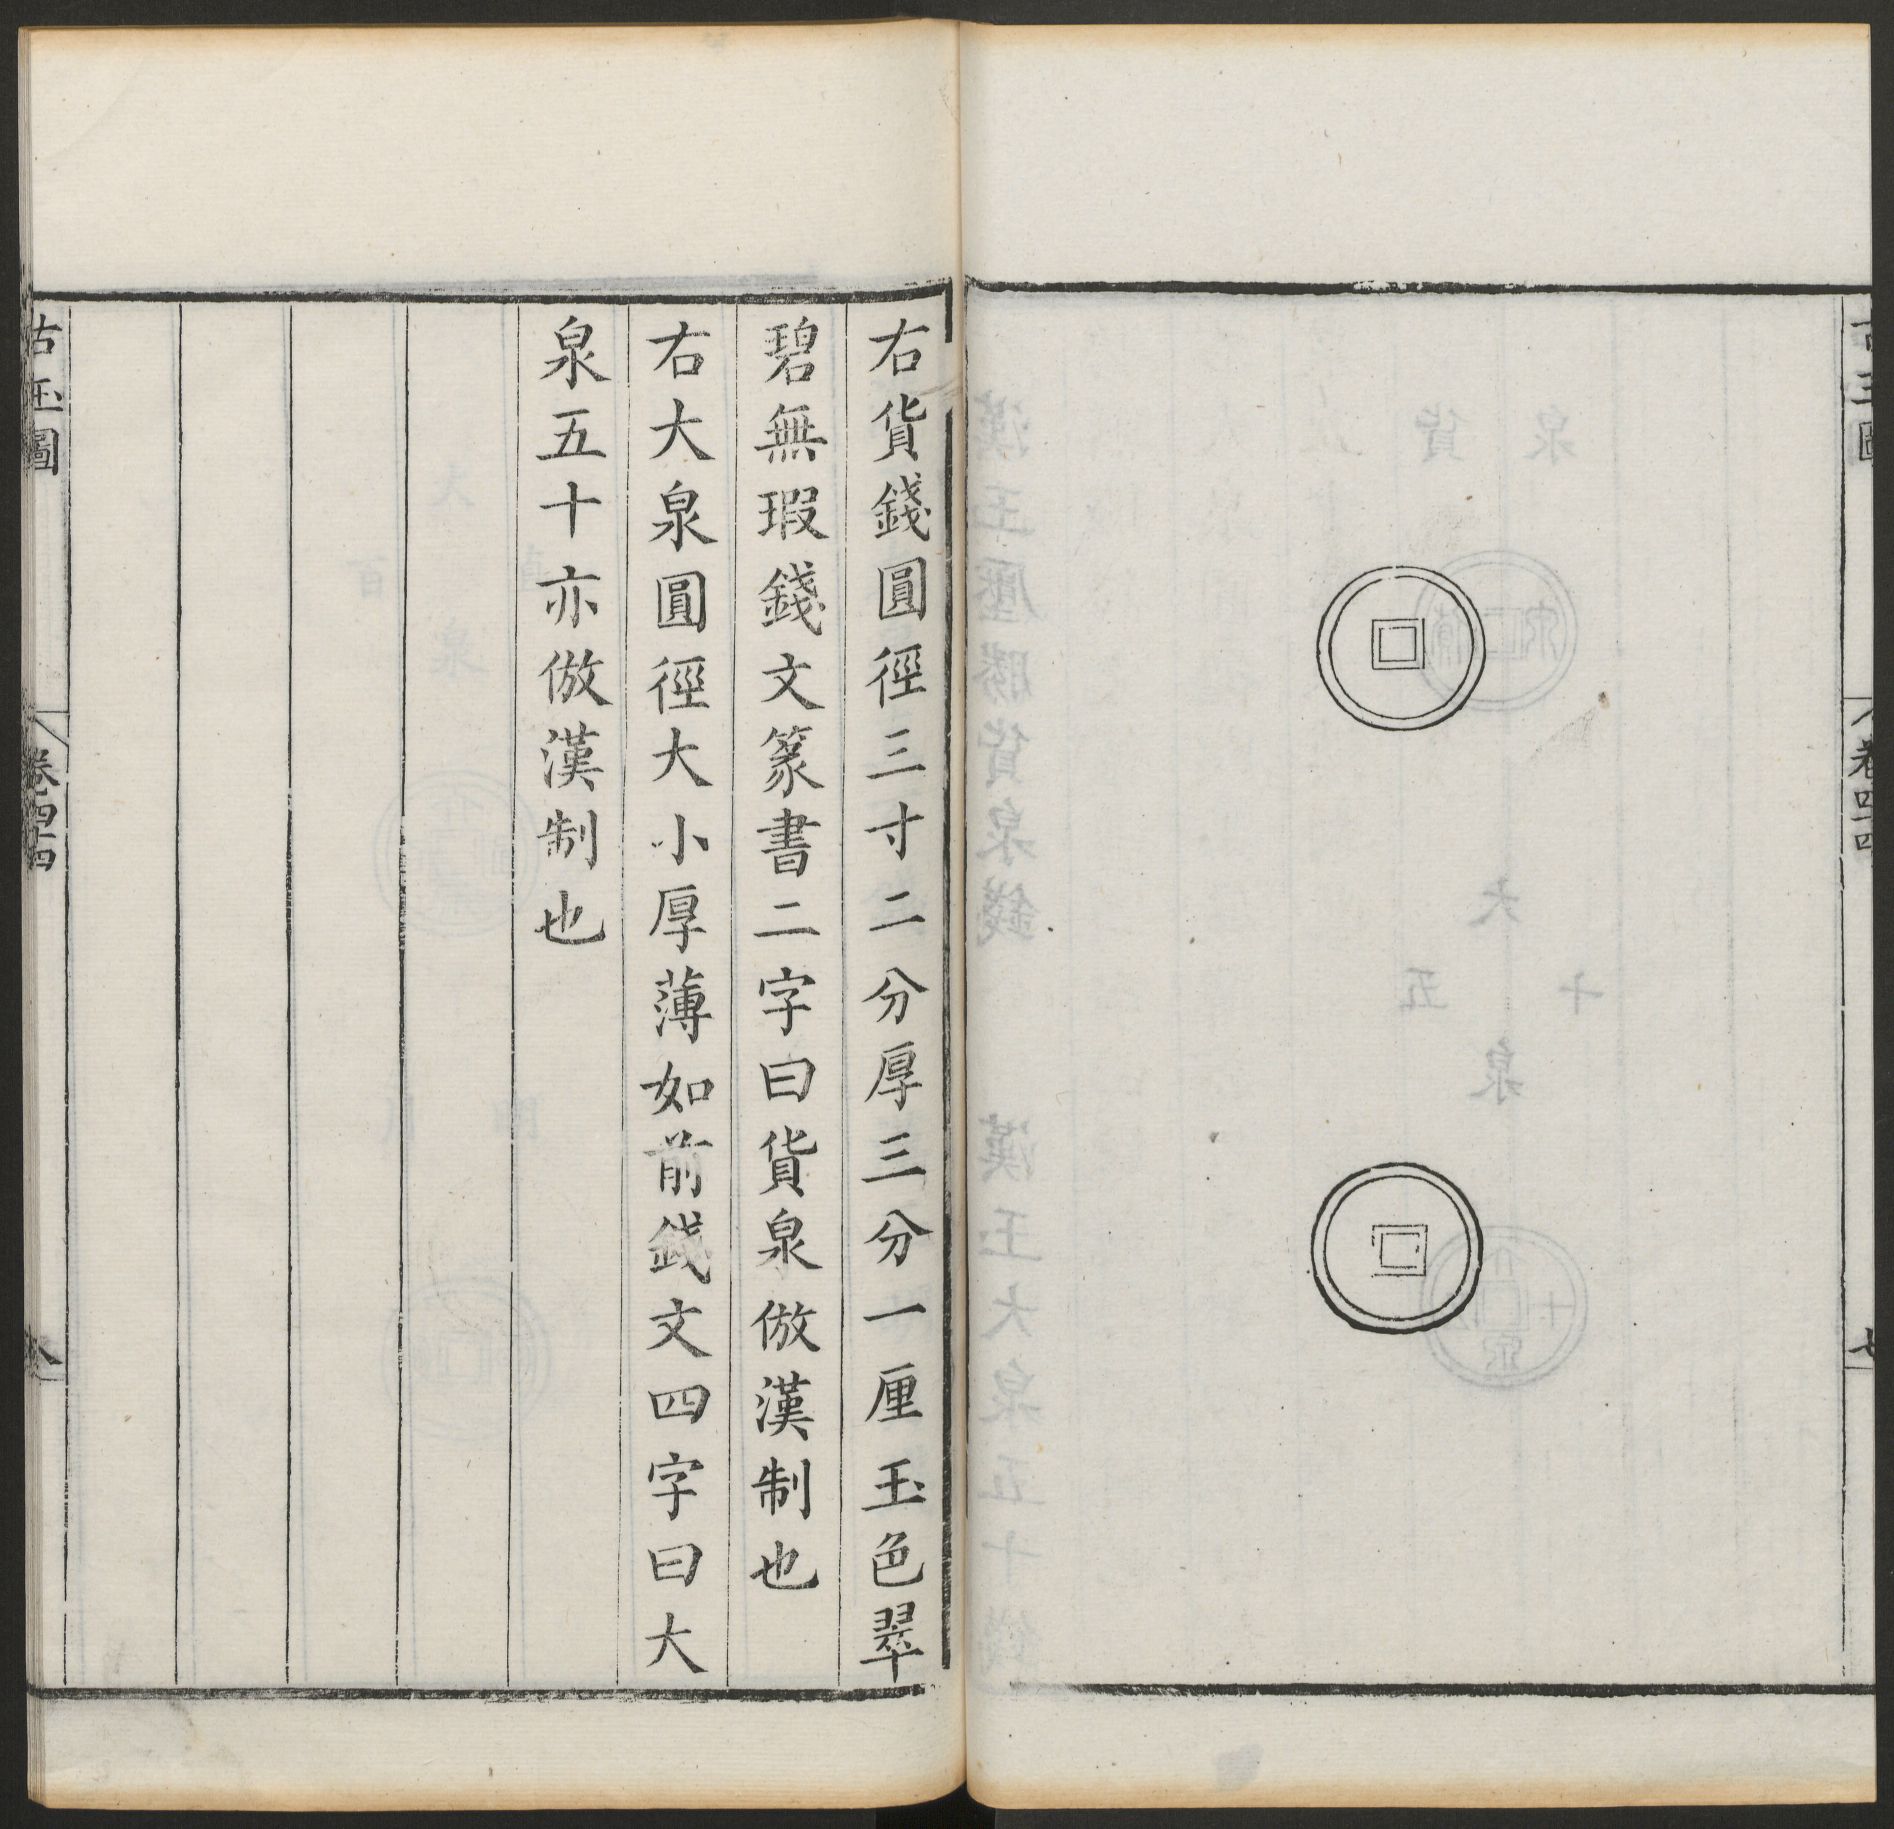 右貨錢圓徑三寸二分厚三分一厘玉色翠
碧無瑕錢文篆書二字曰貨泉倣漢制也
右大泉圓徑大小厚薄如前錢文四字曰大
泉五十亦倣漢制也
古玉圖
卷四四
八